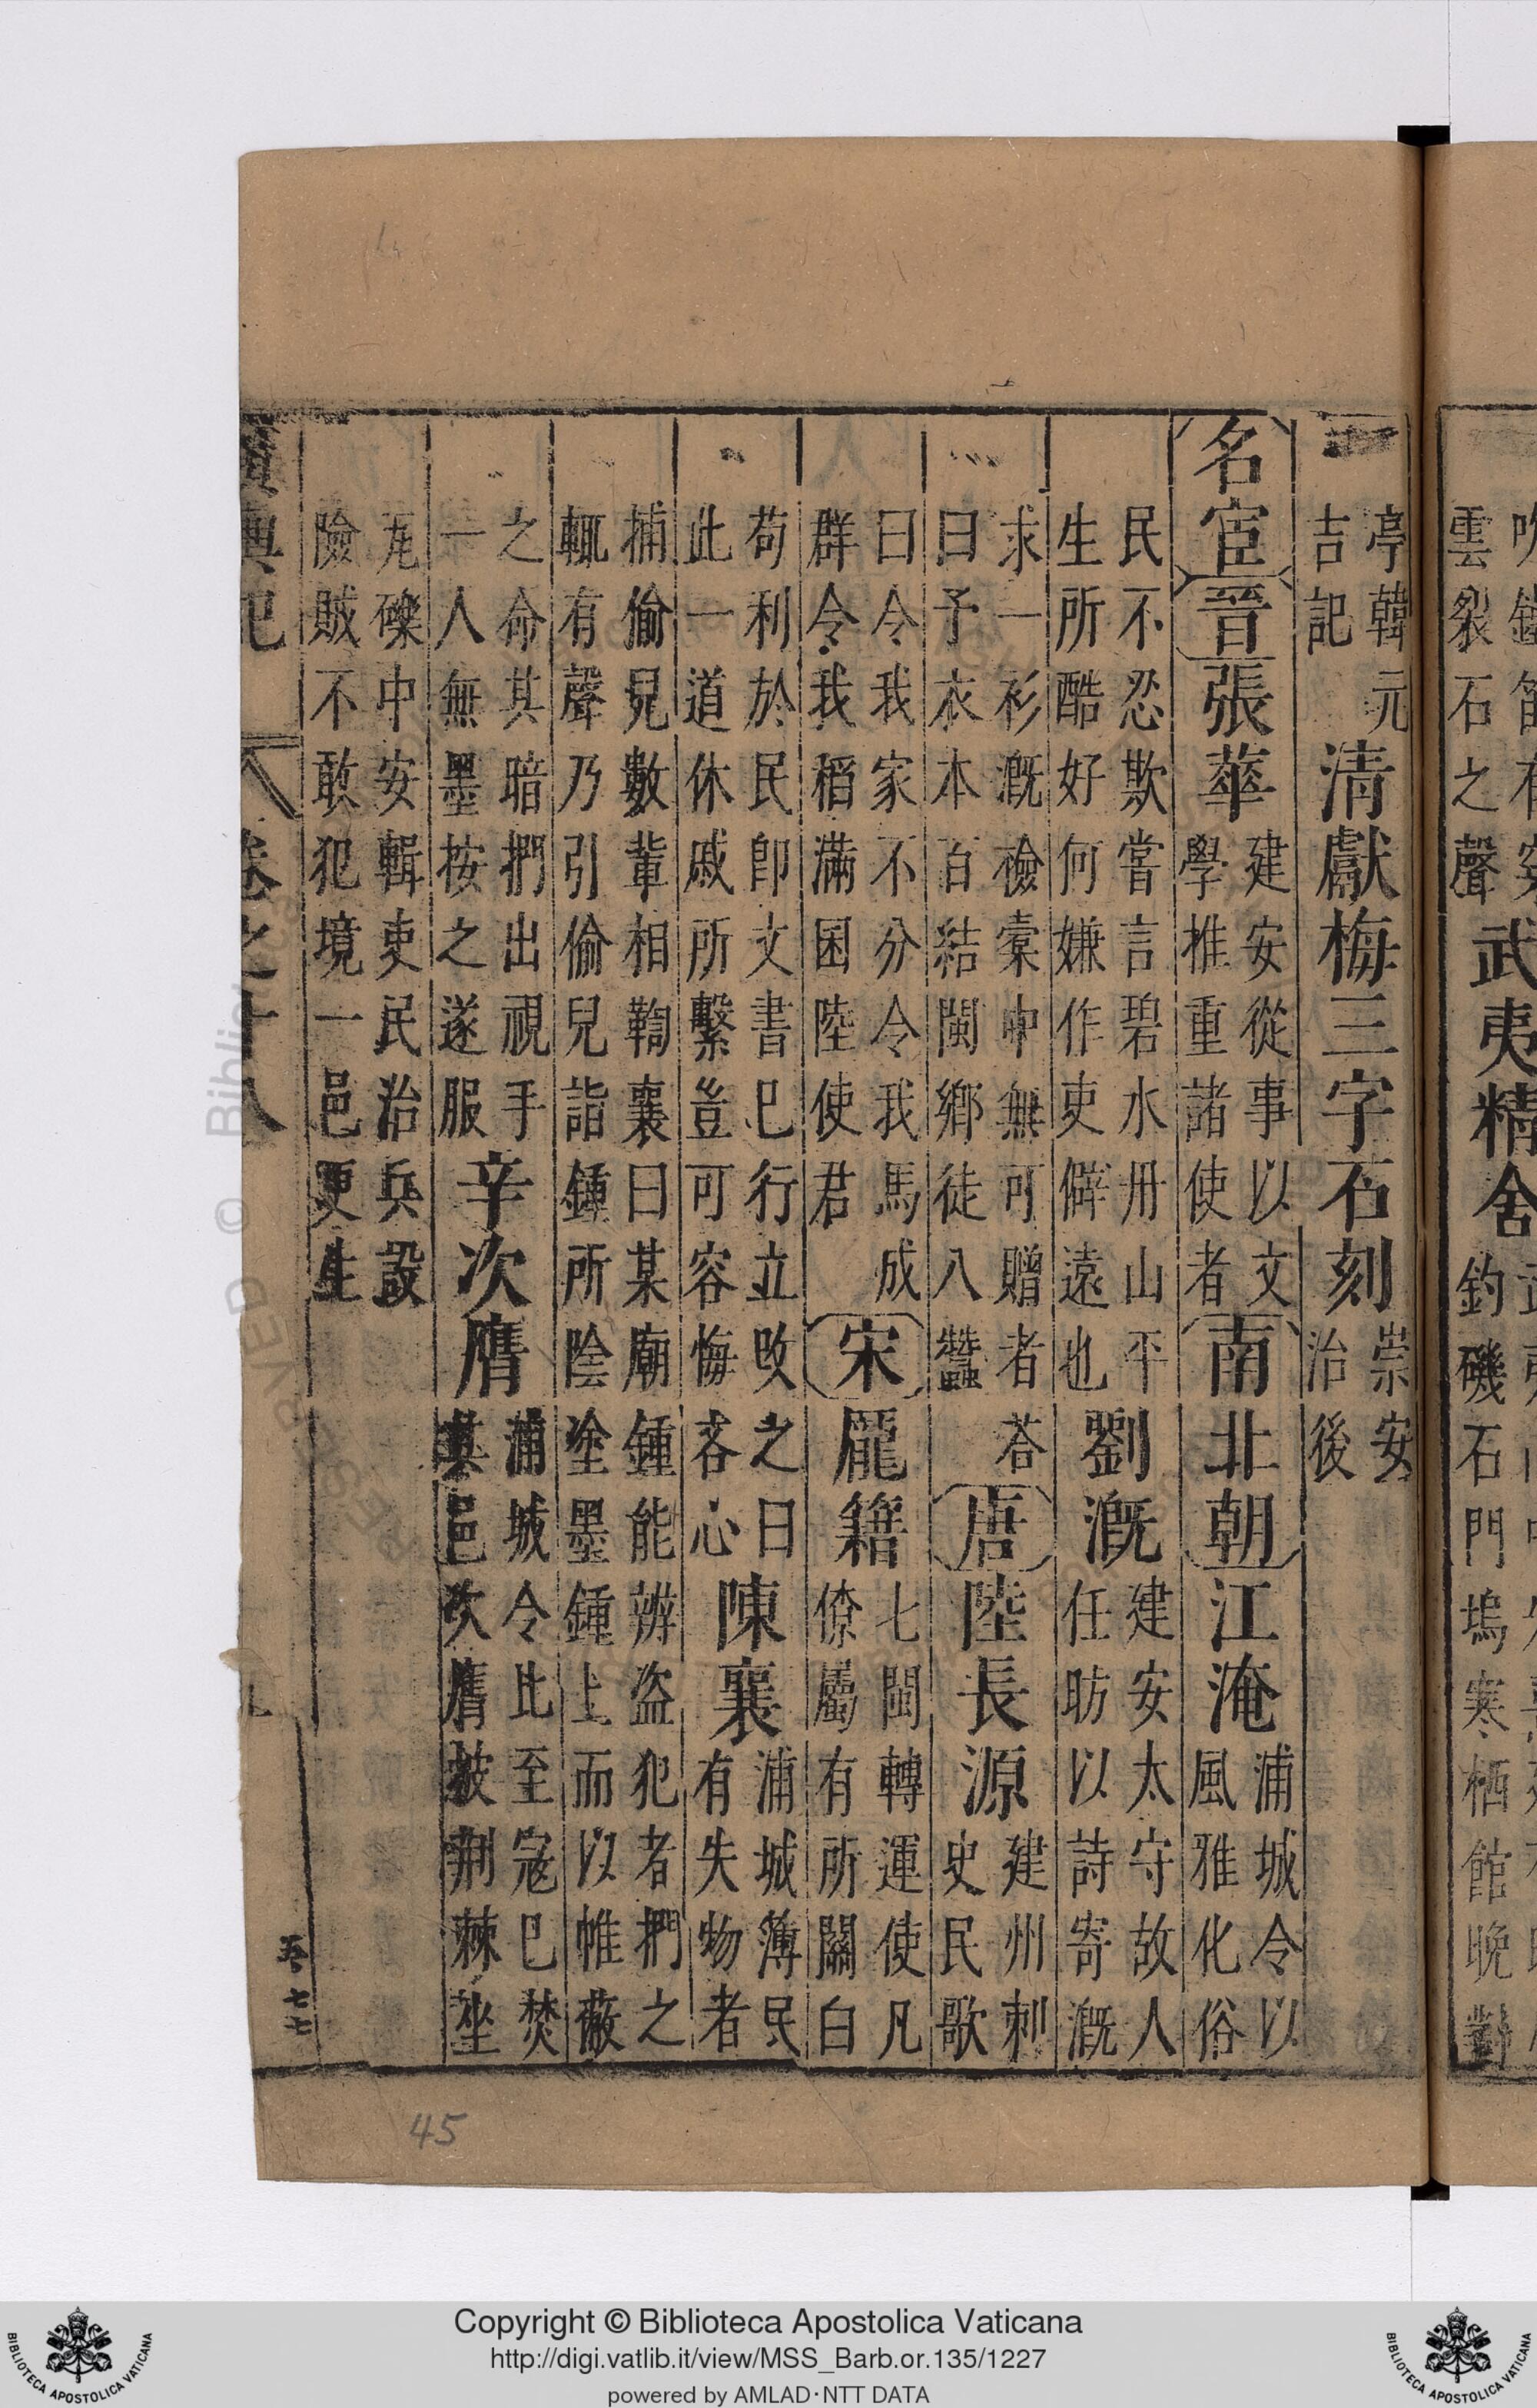 雲裂石之聲武夷精舍釣磯石門塢寒栖館晚對
亭韓元
吉記
清獻梅三字石刻
崇安
治後
名宦晉張華
建安從事以文
學推重諸使者
南北朝江淹
浦城令以
風雅化俗
民不忍欺嘗言碧水丹山平
生所酷好何嫌作吏僻遠也
劉溉
建安太守故人
任昉以詩寄溉
求一衫溉檢橐中無可贈者荅
曰予衣本百結閩鄉徒八蠶
唐陸長源
建州刺
史民歌
曰令我家不分令我馬成
群令我稻滿囷陸使君
宋龎籍
七閩轉運使凡
僚屬有所關白
苟利於民即文書已行立改之曰
此一道休戚所繫豈可容悔吝心
陳襄
浦城簿民
有失物者
捕偷兒數輩相鞫襄曰某廟鍾能辨盗犯者捫之
輒有聲乃引偷兒詣鍾所陰塗墨鍾上而以帷蔽
之命其暗捫出視手
一人無墨按之遂服
辛次膺
浦城令比至寇已焚
其邑次膺披荆棘坐
瓦礫中安輯吏民治兵設
險賊不敢犯境一邑更生
廣輿記
卷之十八
五 七七
45
Copyright © Biblioteca Apostolica Vaticana
http://digi.vatlib.it/view/MSS_Barb.or.135/1227
powered by AMLAD·NTT DATA
BIBLIOTECA APOSTOLICA VATICANA
BIBLIOTECA APOSTOLICA VATICANA